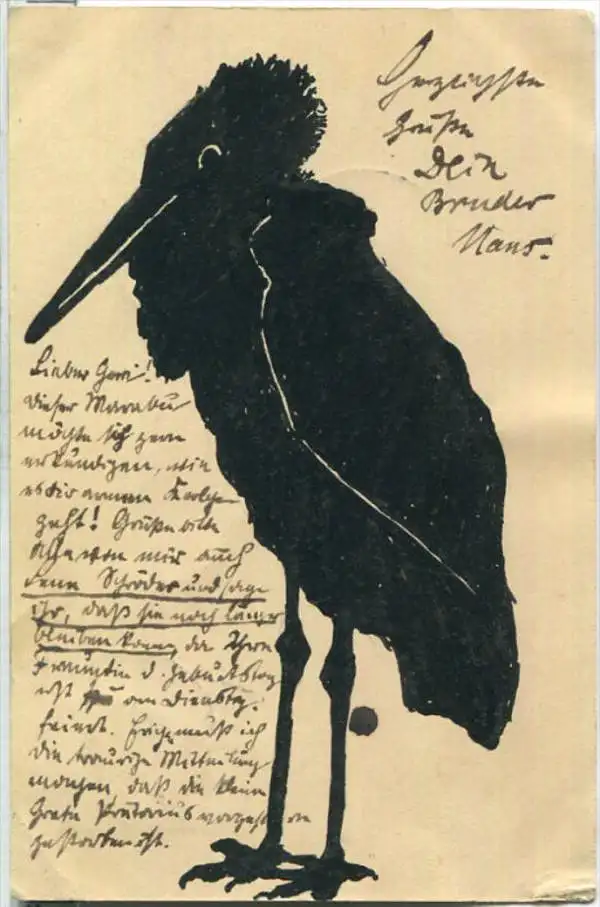 Herzlichste
Grüße
Dein
Bruder
Hans.
Lieber Geri!
dieser Marabu
möchte sich gern
erkundigen, wie
es dir armen Kerlchen
geht! Grüße bitte
Alle von mir auch
Schröder und sage
ihr, daß sie noch länger
bleiben kann, da Ihre
Freundin d. Geburtstag
erst am Dienstag
feiert. muß ich
die traurige Mitteilung
machen, daß die kleine
Grete Prätorius vorgestern
gestorben ist.